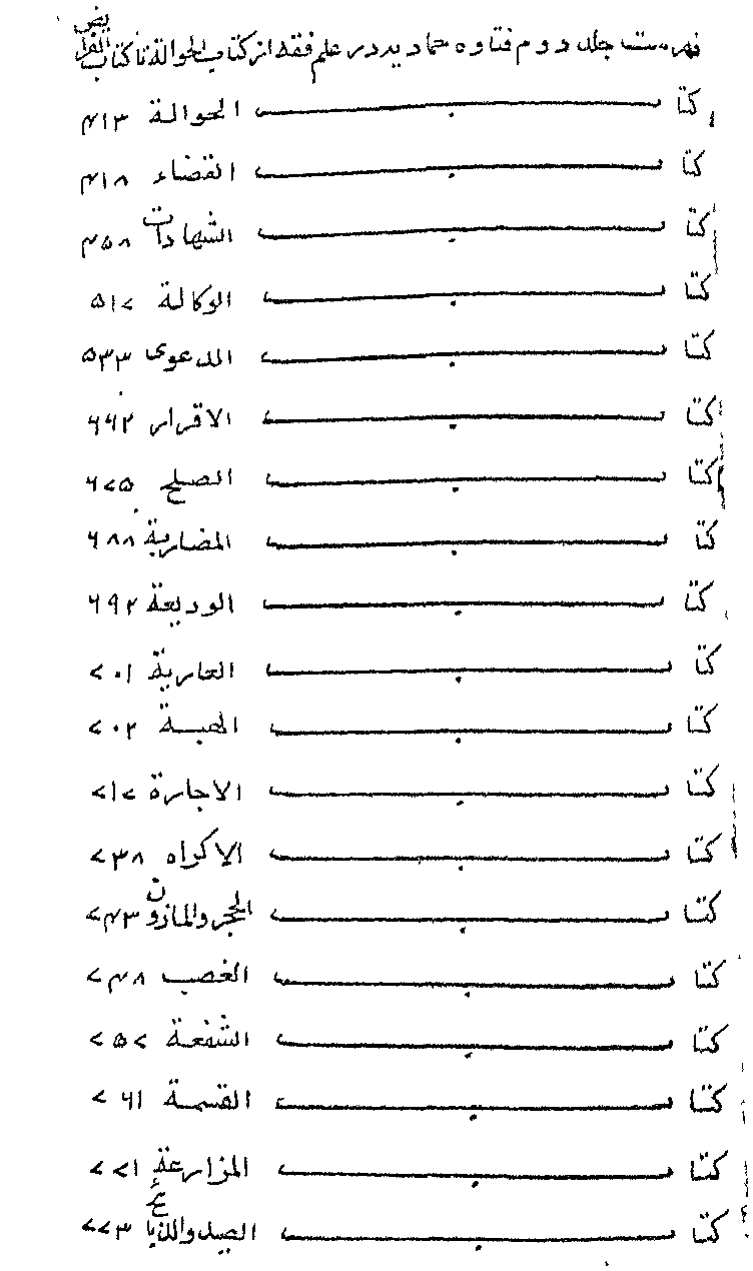 فهرست جلد دوم فتاوه حمادیه در علم فقه از کتاب الحوالة تا کتاب الفرایض
کتاب الحوالة ۴۱۳
کتاب القضاء ۴۱۸
کتاب الشهادات ۴۵۸
کتاب الوکالة ۵۱۷
کتاب الدعوی ۵۳۳
کتاب الاقرار ۶۶۲
کتاب الصلح ۶۷۵
کتاب المضاربة ۶۸۸
کتاب الودیعة ۶۹۲
کتاب العاریة ۷۰۱
کتاب الهبة ۷۰۲
کتاب الاجارة ۷۱۷
کتاب الاکراه ۷۳۸
کتاب الحجر والمازون ۷۴۳
کتاب الغصب ۷۴۸
کتاب الشفعة ۷۵۷
کتاب القسمة ۷۶۱
کتاب المزارعة ۷۷۱
کتاب الصید والذبائح ۷۷۳